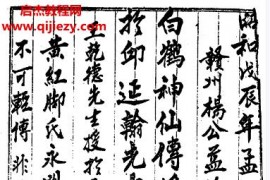 启杰教程网
www.qijiezy.com
和戊辰年孟
贛州楊公益
白鶴神仙傳
於邱延翰
乾德先生授於
黄紅脚氏永
不可輕傳非